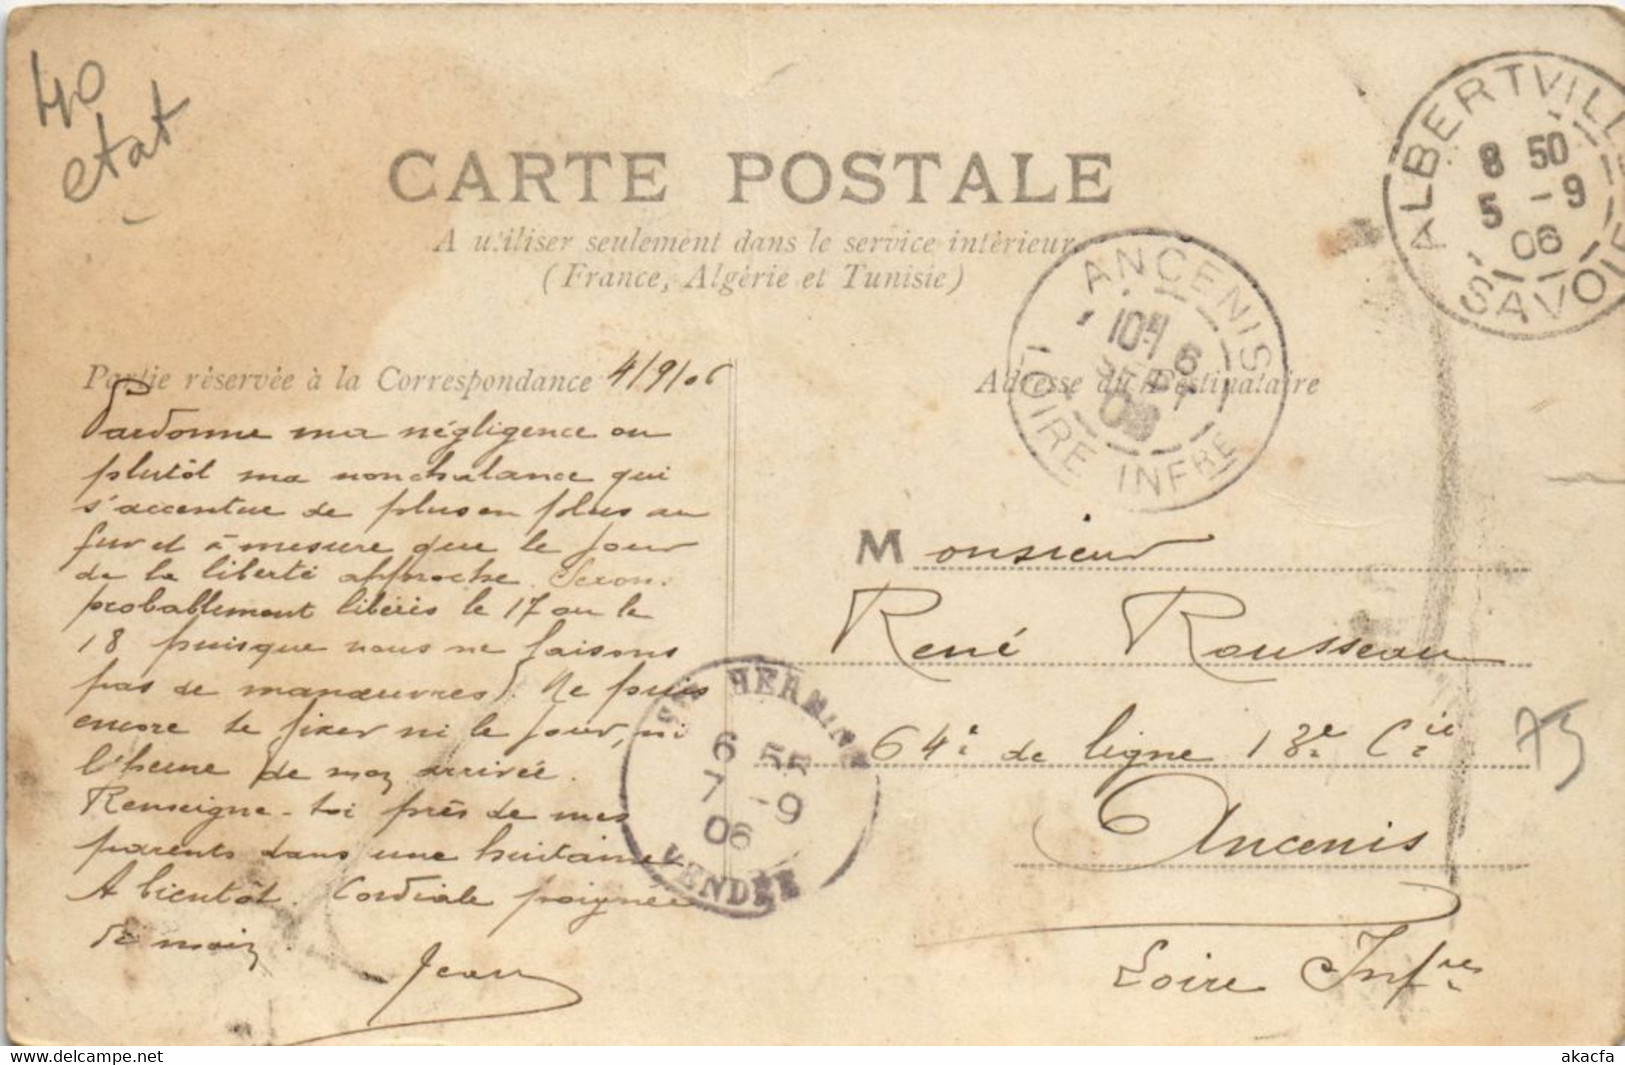 40
etat
CARTE POSTALE
A utiliser seulement dans le service intérieur
(France, Algérie et Tunisie)
ALBERTVILLE
8 50
5 -9
06
SAVOIE
ANCENIS
6
SEPT
LOIRE INFRE
Partie réservée à la Correspondance 4/9/06
Adresse du Destinataire
Pardonne ma négligence ou
plutôt ma nonchalance qui
s'accentue de plus en plus au
fur et à mesure que le jour
de la liberté approche. Serons
probablement libérés le 17 ou le
18 puisque nous ne faisons
pas de manœuvres). Ne puis
encore te fixer ni le jour, ni
l'heure de mon arrivée.
Renseigne-toi près de mes
parents dans une huitaine
A bientôt. Cordiale poignée
de main.
Jean
STE HERMINE
6 55
7 -9
06
VENDÉE
Monsieur
René Rousseau
64e de ligne 13e Cie
Ancenis
Loire Infres